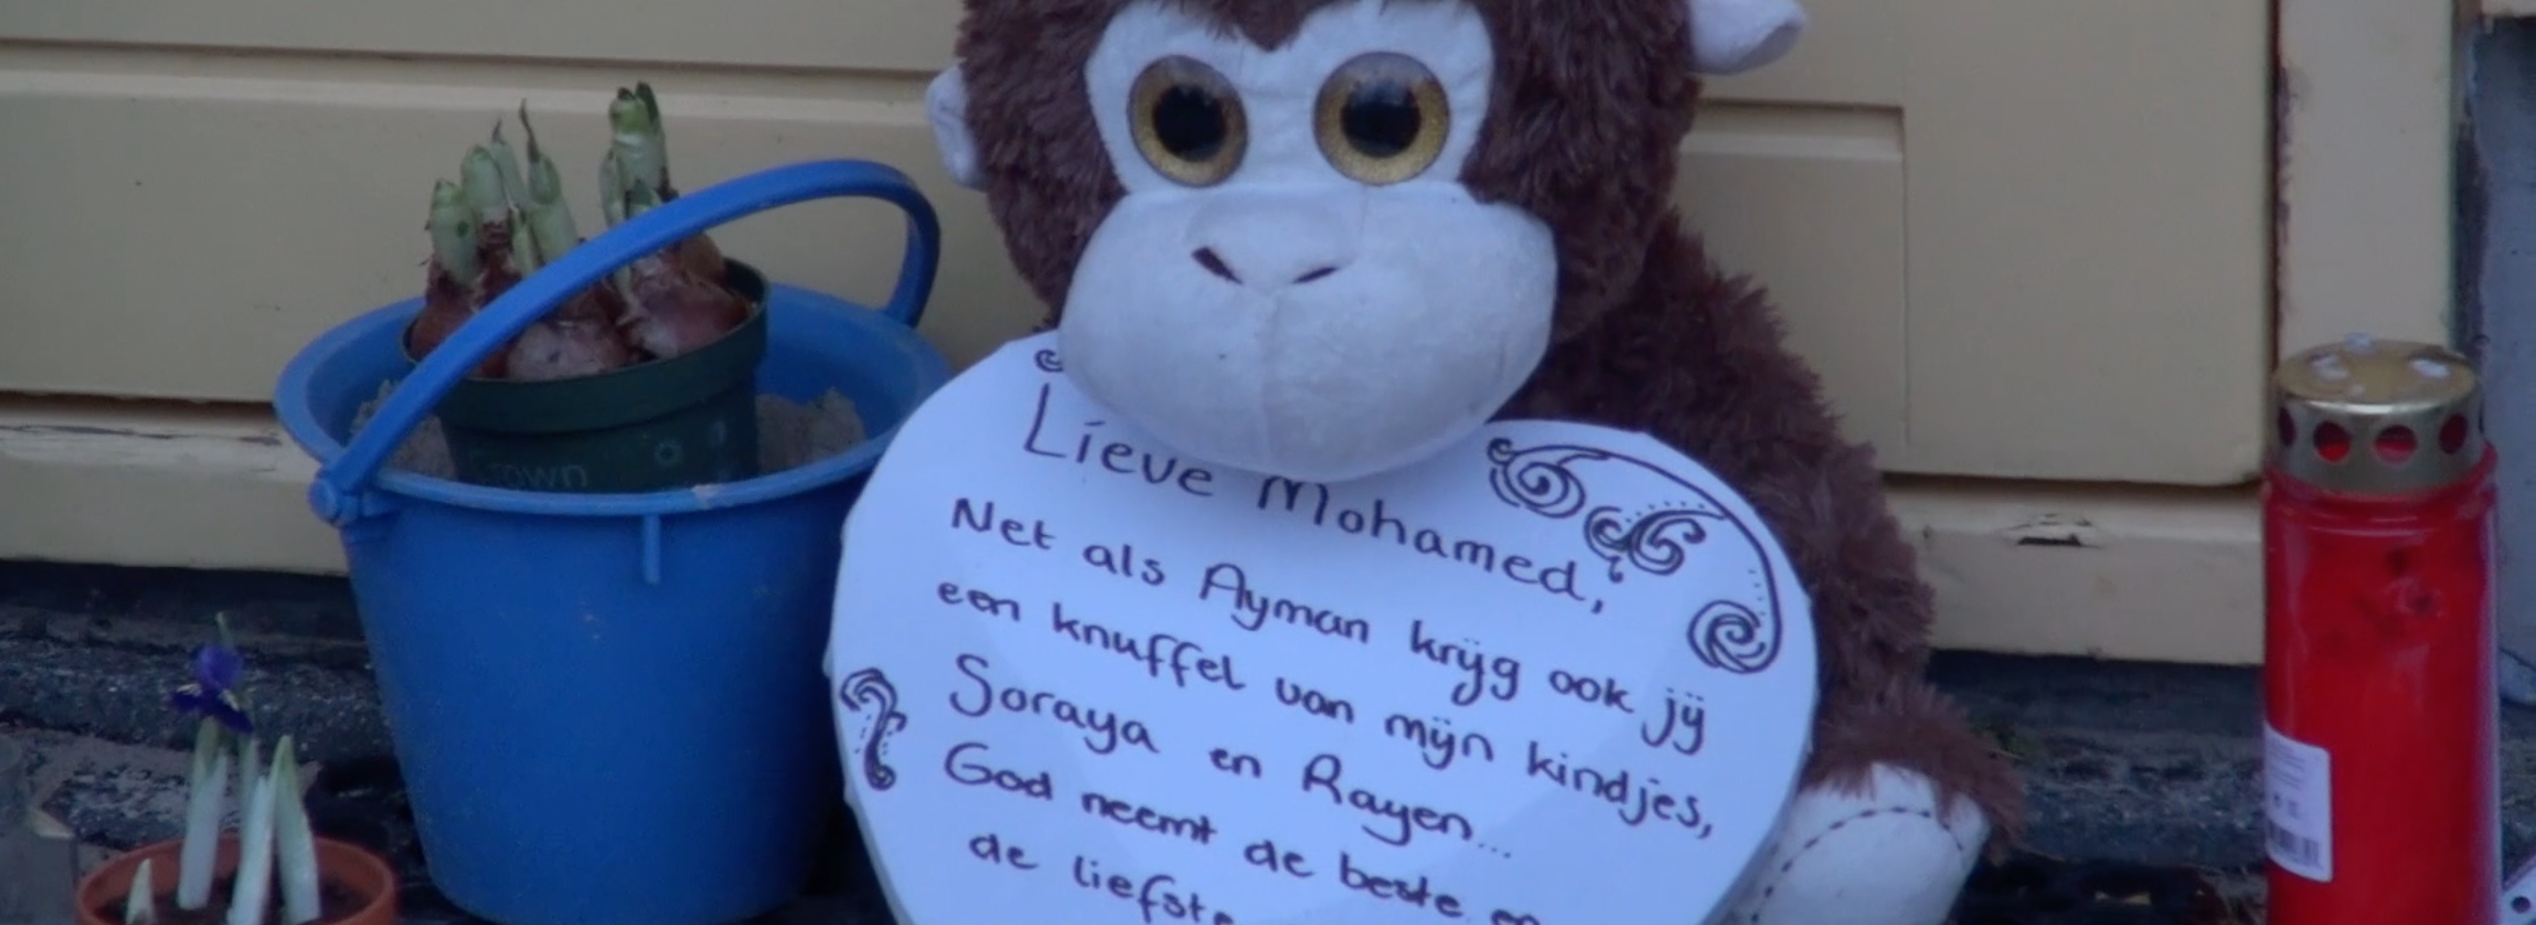 Crown
Lieve Mohamed,
Net als Ayman krijg ook jij
een knuffel van mijn kindjes,
Soraya en Rayen...
God neemt de beste en
de liefste